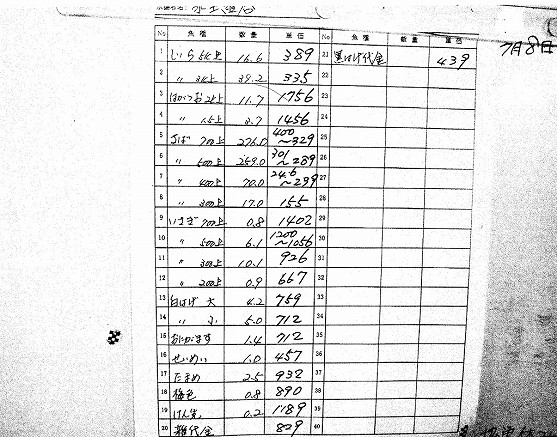 7月8日
No 魚種 数量 単価 No 魚種 数量 単価
1 しいら 5K上 16.6 389 21 黒はげ代金 439
2 〃 3K上 39.2 335 22
3 はがつお 2K上 11.7 1756 23
4 〃 1.5上 3.7 1456 24
5 さば 700上 276.0 400〜329 25
6 〃 500上 259.0 301〜289 26
7 〃 400上 70.0 246〜239 27
8 〃 300上 17.0 155 28
9 いさぎ 700上 0.8 1402 29
10 〃 500上 6.1 1200〜1056 30
11 〃 300上 10.1 926 31
12 〃 200上 0.9 667 32
13 白はげ 大 4.2 759 33
14 〃 小 5.0 712 34
15 おにかます 1.4 712 35
16 せいめい 1.0 457 36
17 ためめ 2.5 932 37
18 梅色 0.8 890 38
19 けん先 0.2 1189 39
20 雑代金 829 40